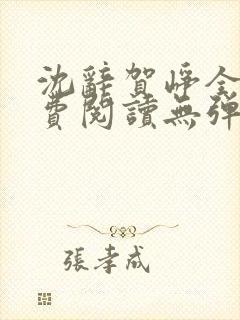 沈辭賀崢全
費閱讀無彈
張孝成